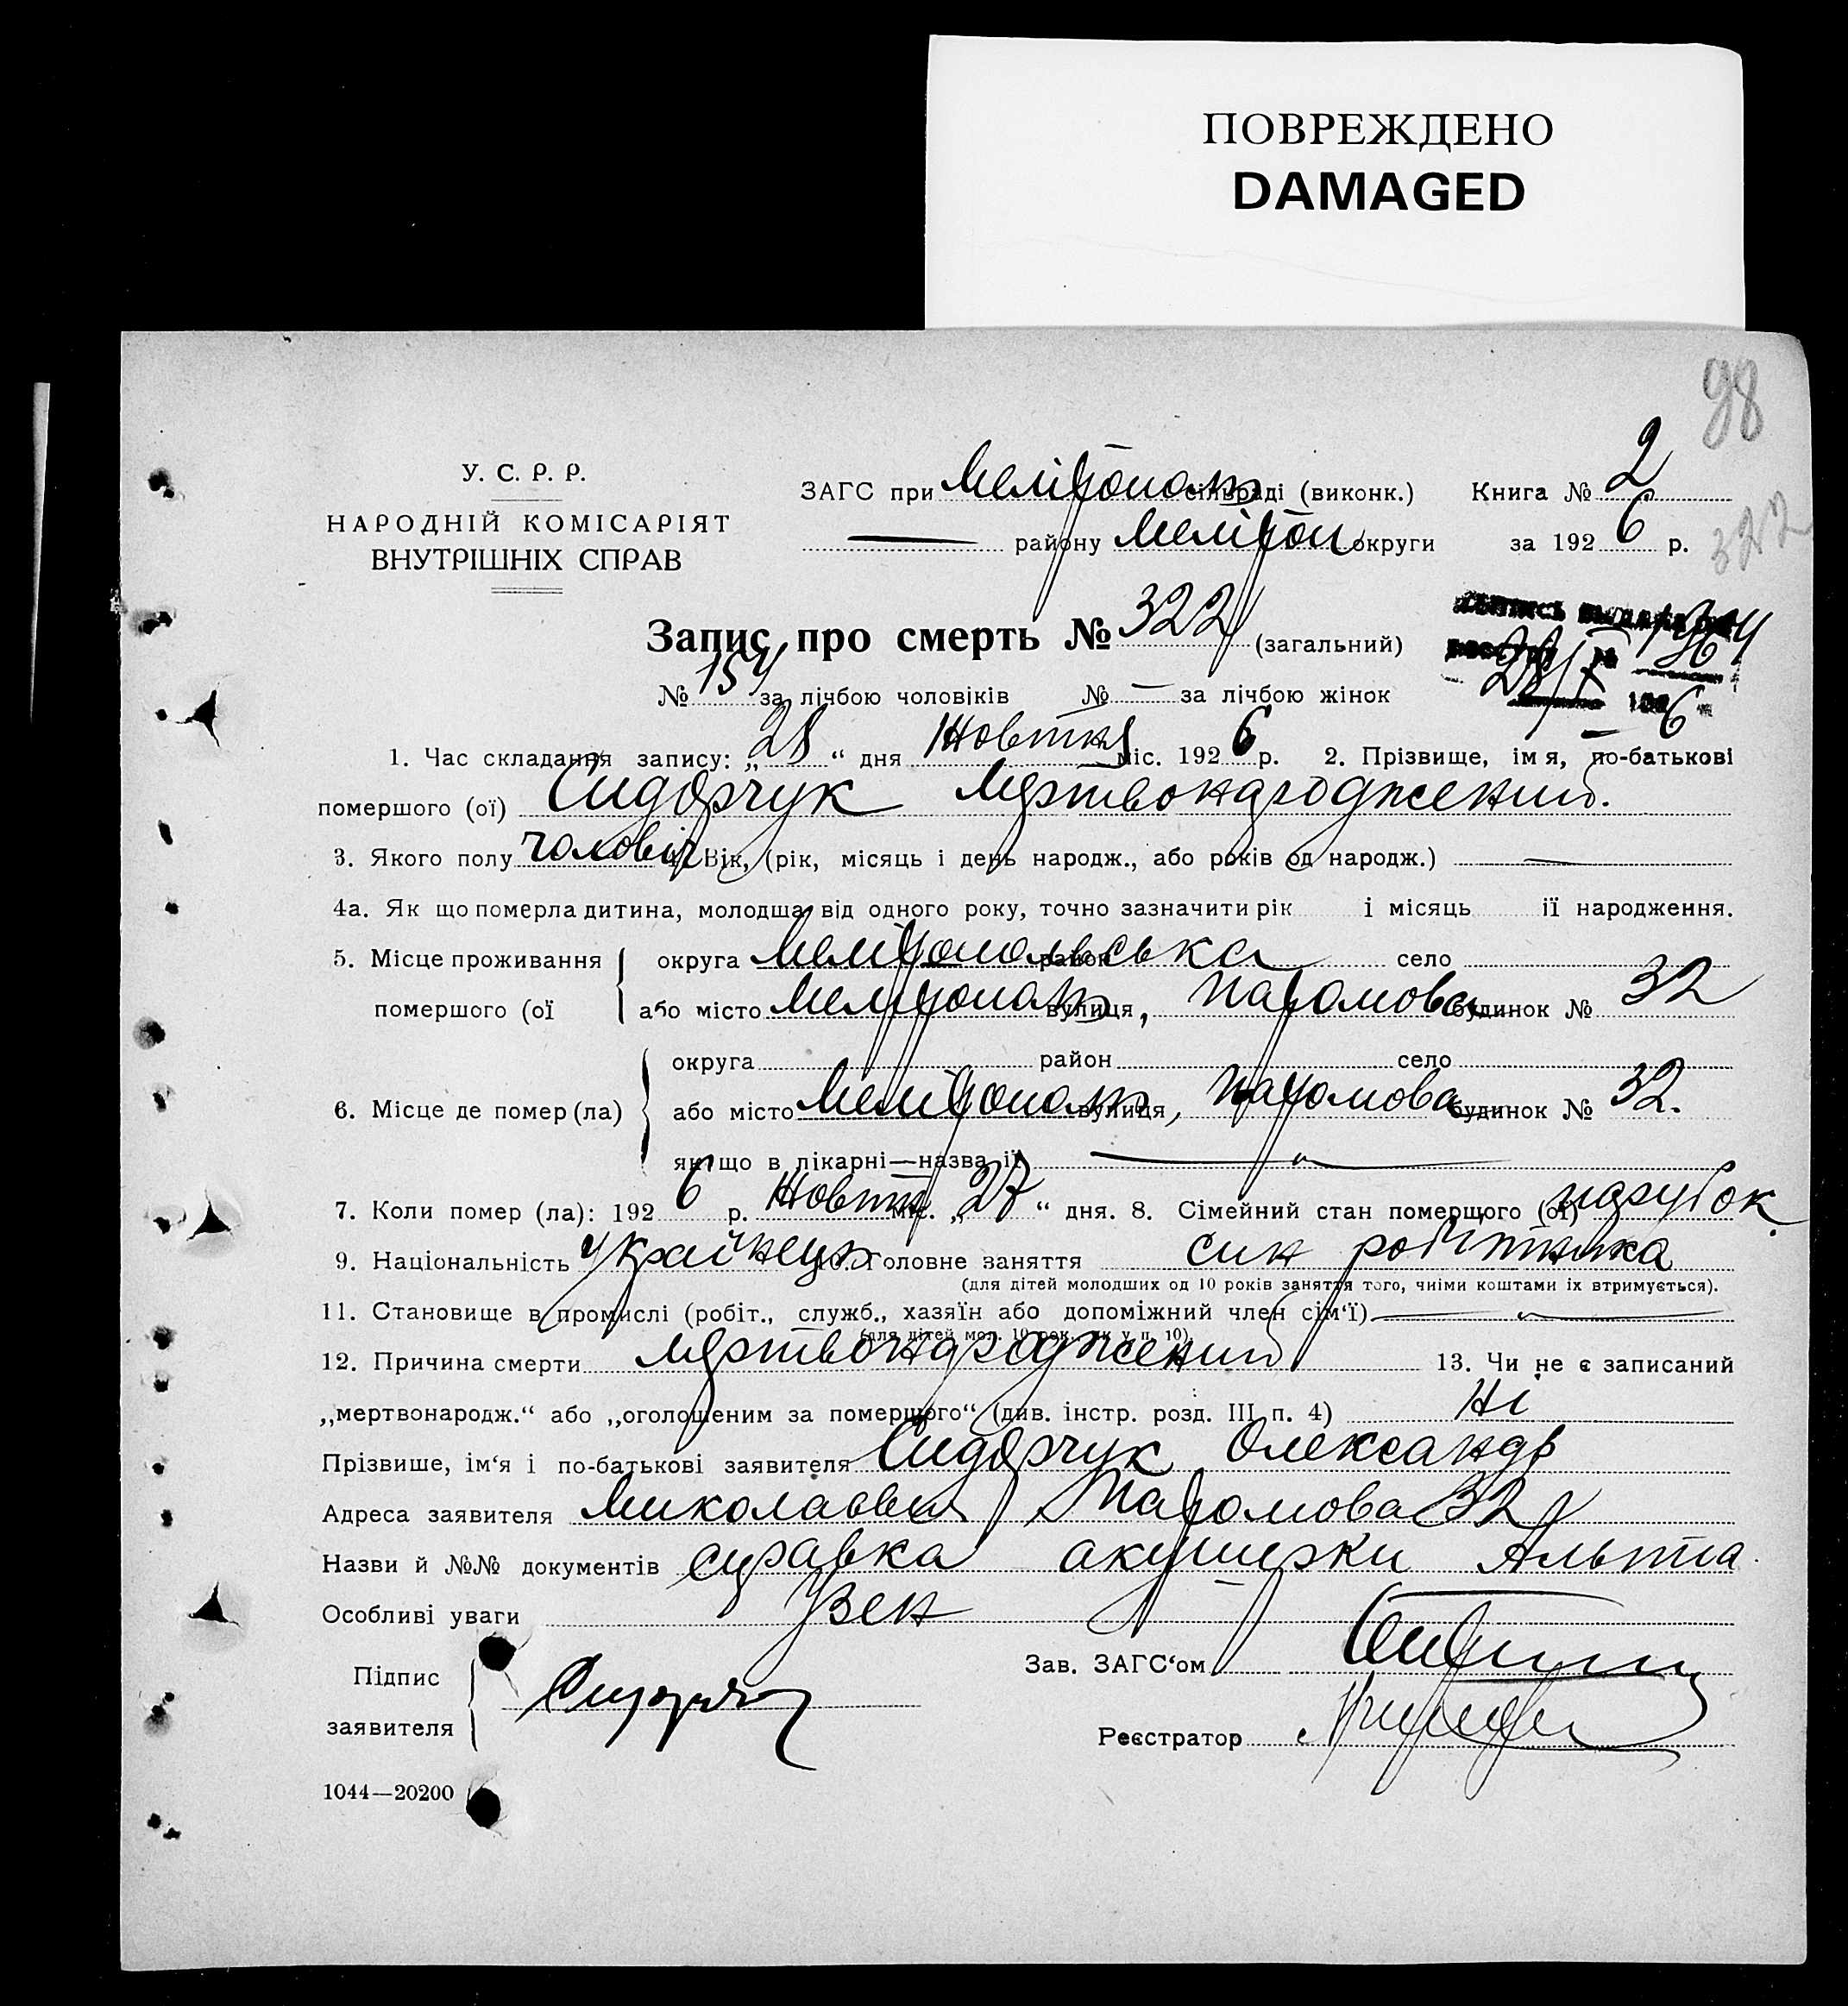 ПОВРЕЖДЕНО
DAMAGED
98
У. С. Р. Р.
НАРОДНІЙ КОМІСАРІЯТ
ВНУТРІШНІХ СПРАВ
ЗАГС при Мелітополь сільраді (виконк.) Книга № 2
— району Мелітоп округи за 1926 р.
322
Запис про смерть № 322 (загальний)
№ 154 за лічбою чоловіків № — за лічбою жінок
1. Час складання запису: „28“ дня Жовтня міс. 1926 р. 2. Прізвище, імя, по-батькові
помершого (ої) Сидорчук Мертвонароджений.
3. Якого полу чоловіч 4. Вік, (рік, місяць і день народж., або років од народж.) —
4а. Як що померла дитина, молодша від одного року, точно зазначити рік і місяць її народження.
5. Місце проживання помершого (ої округа Мелітопольська район село
або місто Мелітополь вулиця, будинок № 32
6. Місце де помер (ла) округа район село
або місто Мелітополь вулиця, будинок № 32.
як що в лікарні—назва її —
7. Коли помер (ла): 1926 р. Жовтня міс. „27“ дня. 8. Сімейний стан помершого (ої) парубок
9. Національність Українець 10. Головне заняття син робітника
(для дітей молодших од 10 років заняття того, чиїми коштами їх втримується).
11. Становище в промислі (робіт., служб., хазяїн або допоміжний член сім‘ї) —
(для дітей мол. 10 рок., як у п. 10).
12. Причина смерти мертвонароджений 13. Чи не є записаний
„мертвонародж.“ або „оголошеним за помершого“ (див. інстр. розд. III п. 4) Ні
Прізвише, ім‘я і по-батькові заявителя Сидорчук Олександр
Адреса заявителя Миколаєвич 32
Назви й №№ документів справка акушерки Альтга
Особливі уваги узен
Підпис
заявителя
Зав. ЗАГС‘ом
Реєстратор
1044—20200